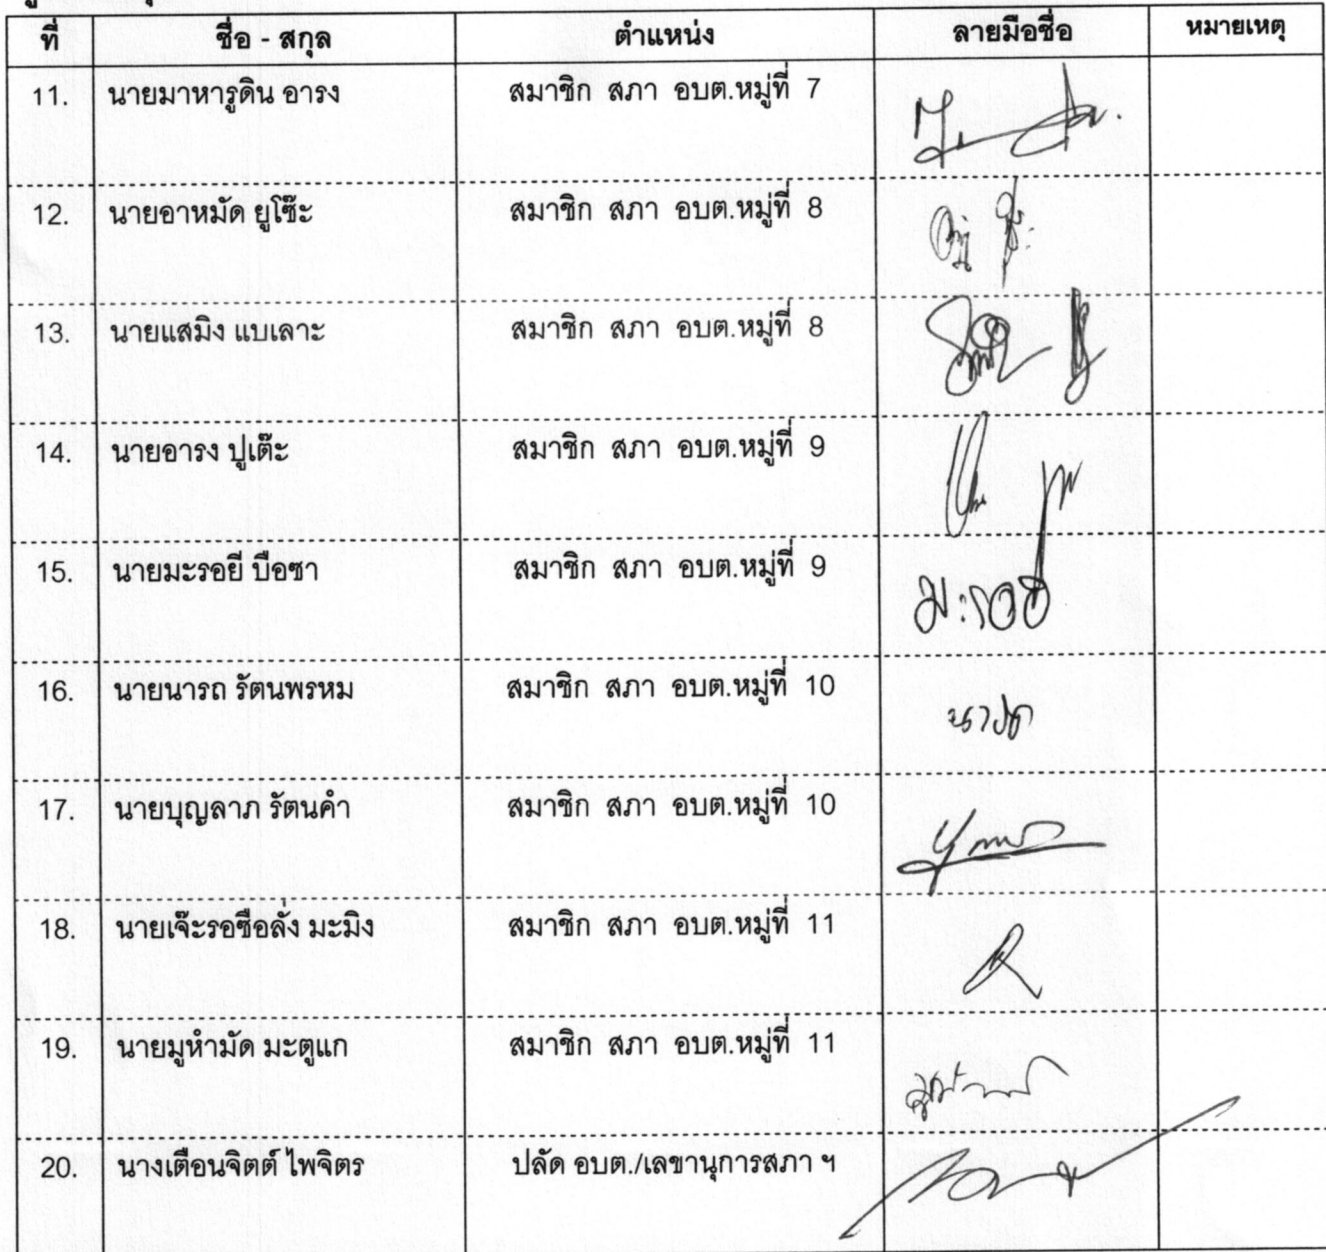 ที่ ชื่อ - สกุล ตำแหน่ง ลายมือชื่อ หมายเหตุ
11. นายมาหารูดิน อารง สมาชิก สภา อบต.หมู่ที่ 7
12. นายอาหมัด ยูโซ๊ะ สมาชิก สภา อบต.หมู่ที่ 8
13. นายแสมิง แบเลาะ สมาชิก สภา อบต.หมู่ที่ 8
14. นายอารง ปูเต๊ะ สมาชิก สภา อบต.หมู่ที่ 9
15. นายมะรอยี บือซา สมาชิก สภา อบต.หมู่ที่ 9 มะรอยี
16. นายนารถ รัตนพรหม สมาชิก สภา อบต.หมู่ที่ 10
17. นายบุญลาภ รัตนคำ สมาชิก สภา อบต.หมู่ที่ 10
18. นายเจ๊ะรอซือลั่ง มะมิง สมาชิก สภา อบต.หมู่ที่ 11
19. นายมูหำมัด มะตูแก สมาชิก สภา อบต.หมู่ที่ 11
20. นางเตือนจิตต์ ไพจิตร ปลัด อบต./เลขานุการสภา ฯ